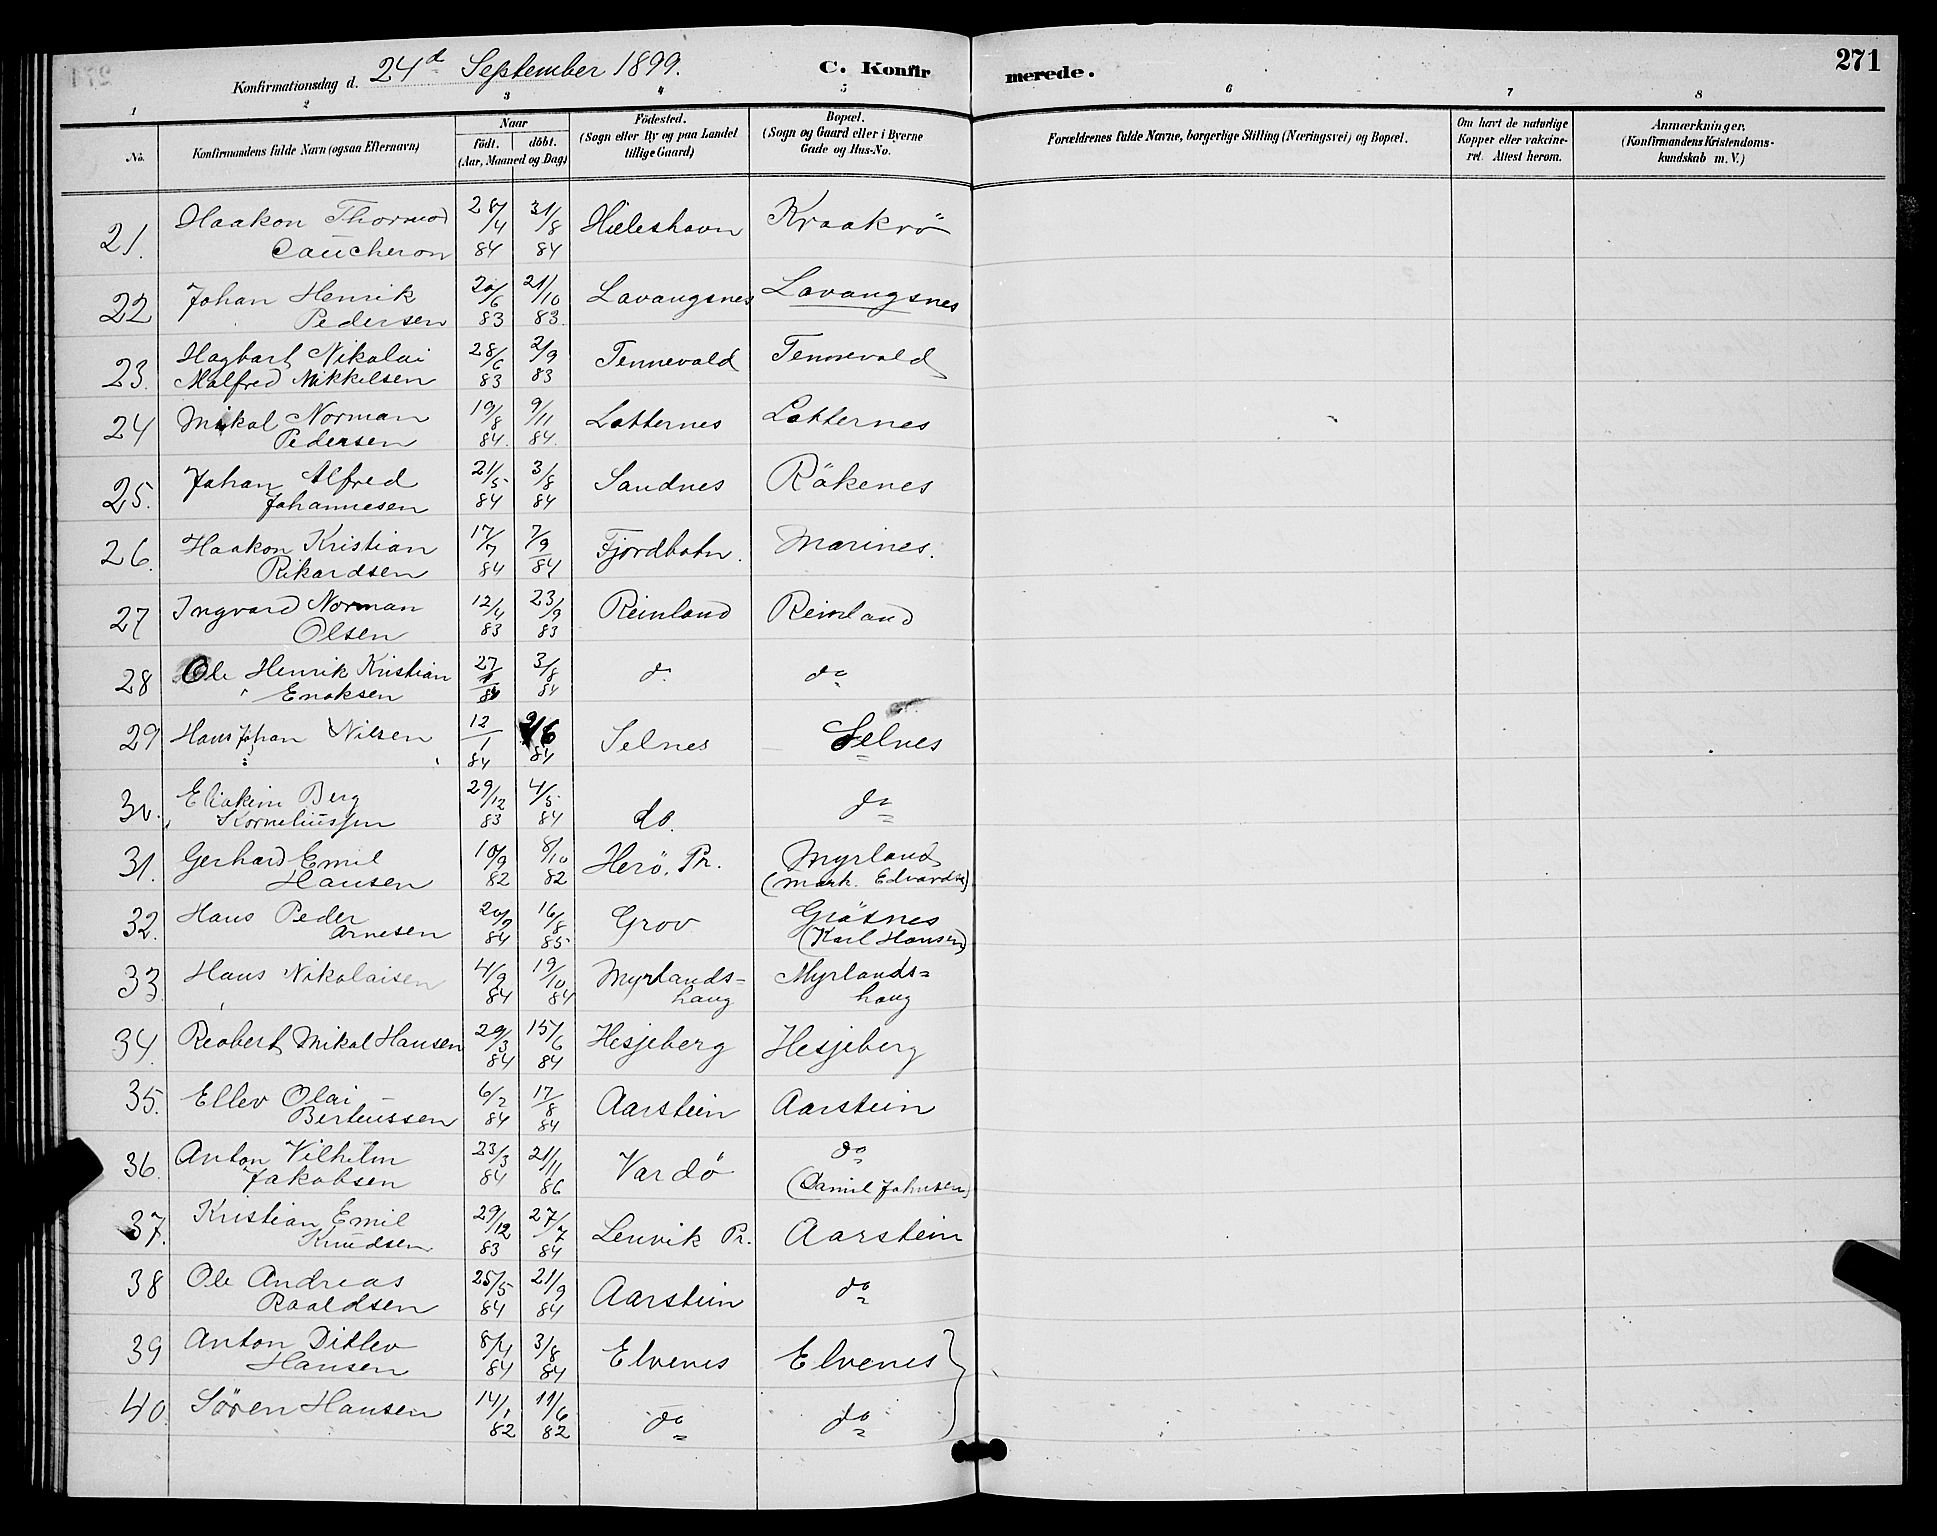 271
Konfirmationsdag d. 24d September 1899. C. Konfirmerede.
1 2 3 4 5 6 7 8
No. Konfirmandens fulde Navn (ogsaa Efternavn) Naar født. døbt. (Aar, Maaned og Dag) Fødested. (Sogn eller By og paa Landet tillige Gaard) Bopæl. (Sogn og Gaard eller i Byerne Gade og Hus-No. Forældrenes fulde Navne, borgerlige Stilling (Næringsvei) og Bopæl. Om havt de naturlige Kopper eller vakcineret. Attest herom. Anmærkninger. (Konfirmandens Kristendomskundskab m. V.)
21. Haakon Thormod Caucheron 28/4 84 31/8 84 Kraakrö
22 Johan Henrik Pedersen 20/6 83 21/10 83. Lavangsnes Lavangsnes
23. Hagbart Nikolai Malfred Mikkelsen 28/6 83 2/9 83 Tennevold Tennevold
24 Mikal Norman Pedersen 19/8 84. 9/11 84. Lotternes Lotternes
25. Johan Alfred Johannesen 21/5 84 3/8 84 Sandnes Rökenes
26. Haakon Kristian Rikardsen 17/7 84 7/9 84 Fjordbotn. Marines.
27 Ingvard Norman Olsen 12/4 83 23/9 83 Reinland Reinland
28 Ole Henrik Kristian Enoksen 27/ 84 3/8 84 do do
29 Hans Johan Nilsen 12/1 84 84 Selnes Selnes
30. Eliakim Berg Korneliussen 29/12 83 4/5 84 do. do
31. Gerhard Emil Hansen 10/9 82 8/10 82 Herö. Pr. Myrland (Mark. Edvards)
32. Hans Peder Arnesen 20/9 84 16/8 85 Grov Grötnes (Karl Hansen)
33 Hans Nikolaisen 4/9 84 19/10 84 Myrlands=haug Myrlands=haug
34. Reobert Mikal Hansen 29/3 84 15/6 84 Hesjeberg Hesjeberg
35. Ellev Olai Berteussen 6/2 84 17/8 84 Aarstein Aarstein
36. Anton Vilhelm Jakobsen 23/3 84 21/11 86 Vardö do (Daniel Johnsen)
37. Kristian Emil Knudsen 29/12 83 27/7 84 Lenvik Pr. Aarstein
38 Ole Andreas Roaldsen 25/5 84 21/9 84 Aarstein do
39 Anton Ditlev Hansen 8/4 84 3/8 84 Elvenes Elvenes
40. Sören Hansen 14/1 82 11/6 82 do do